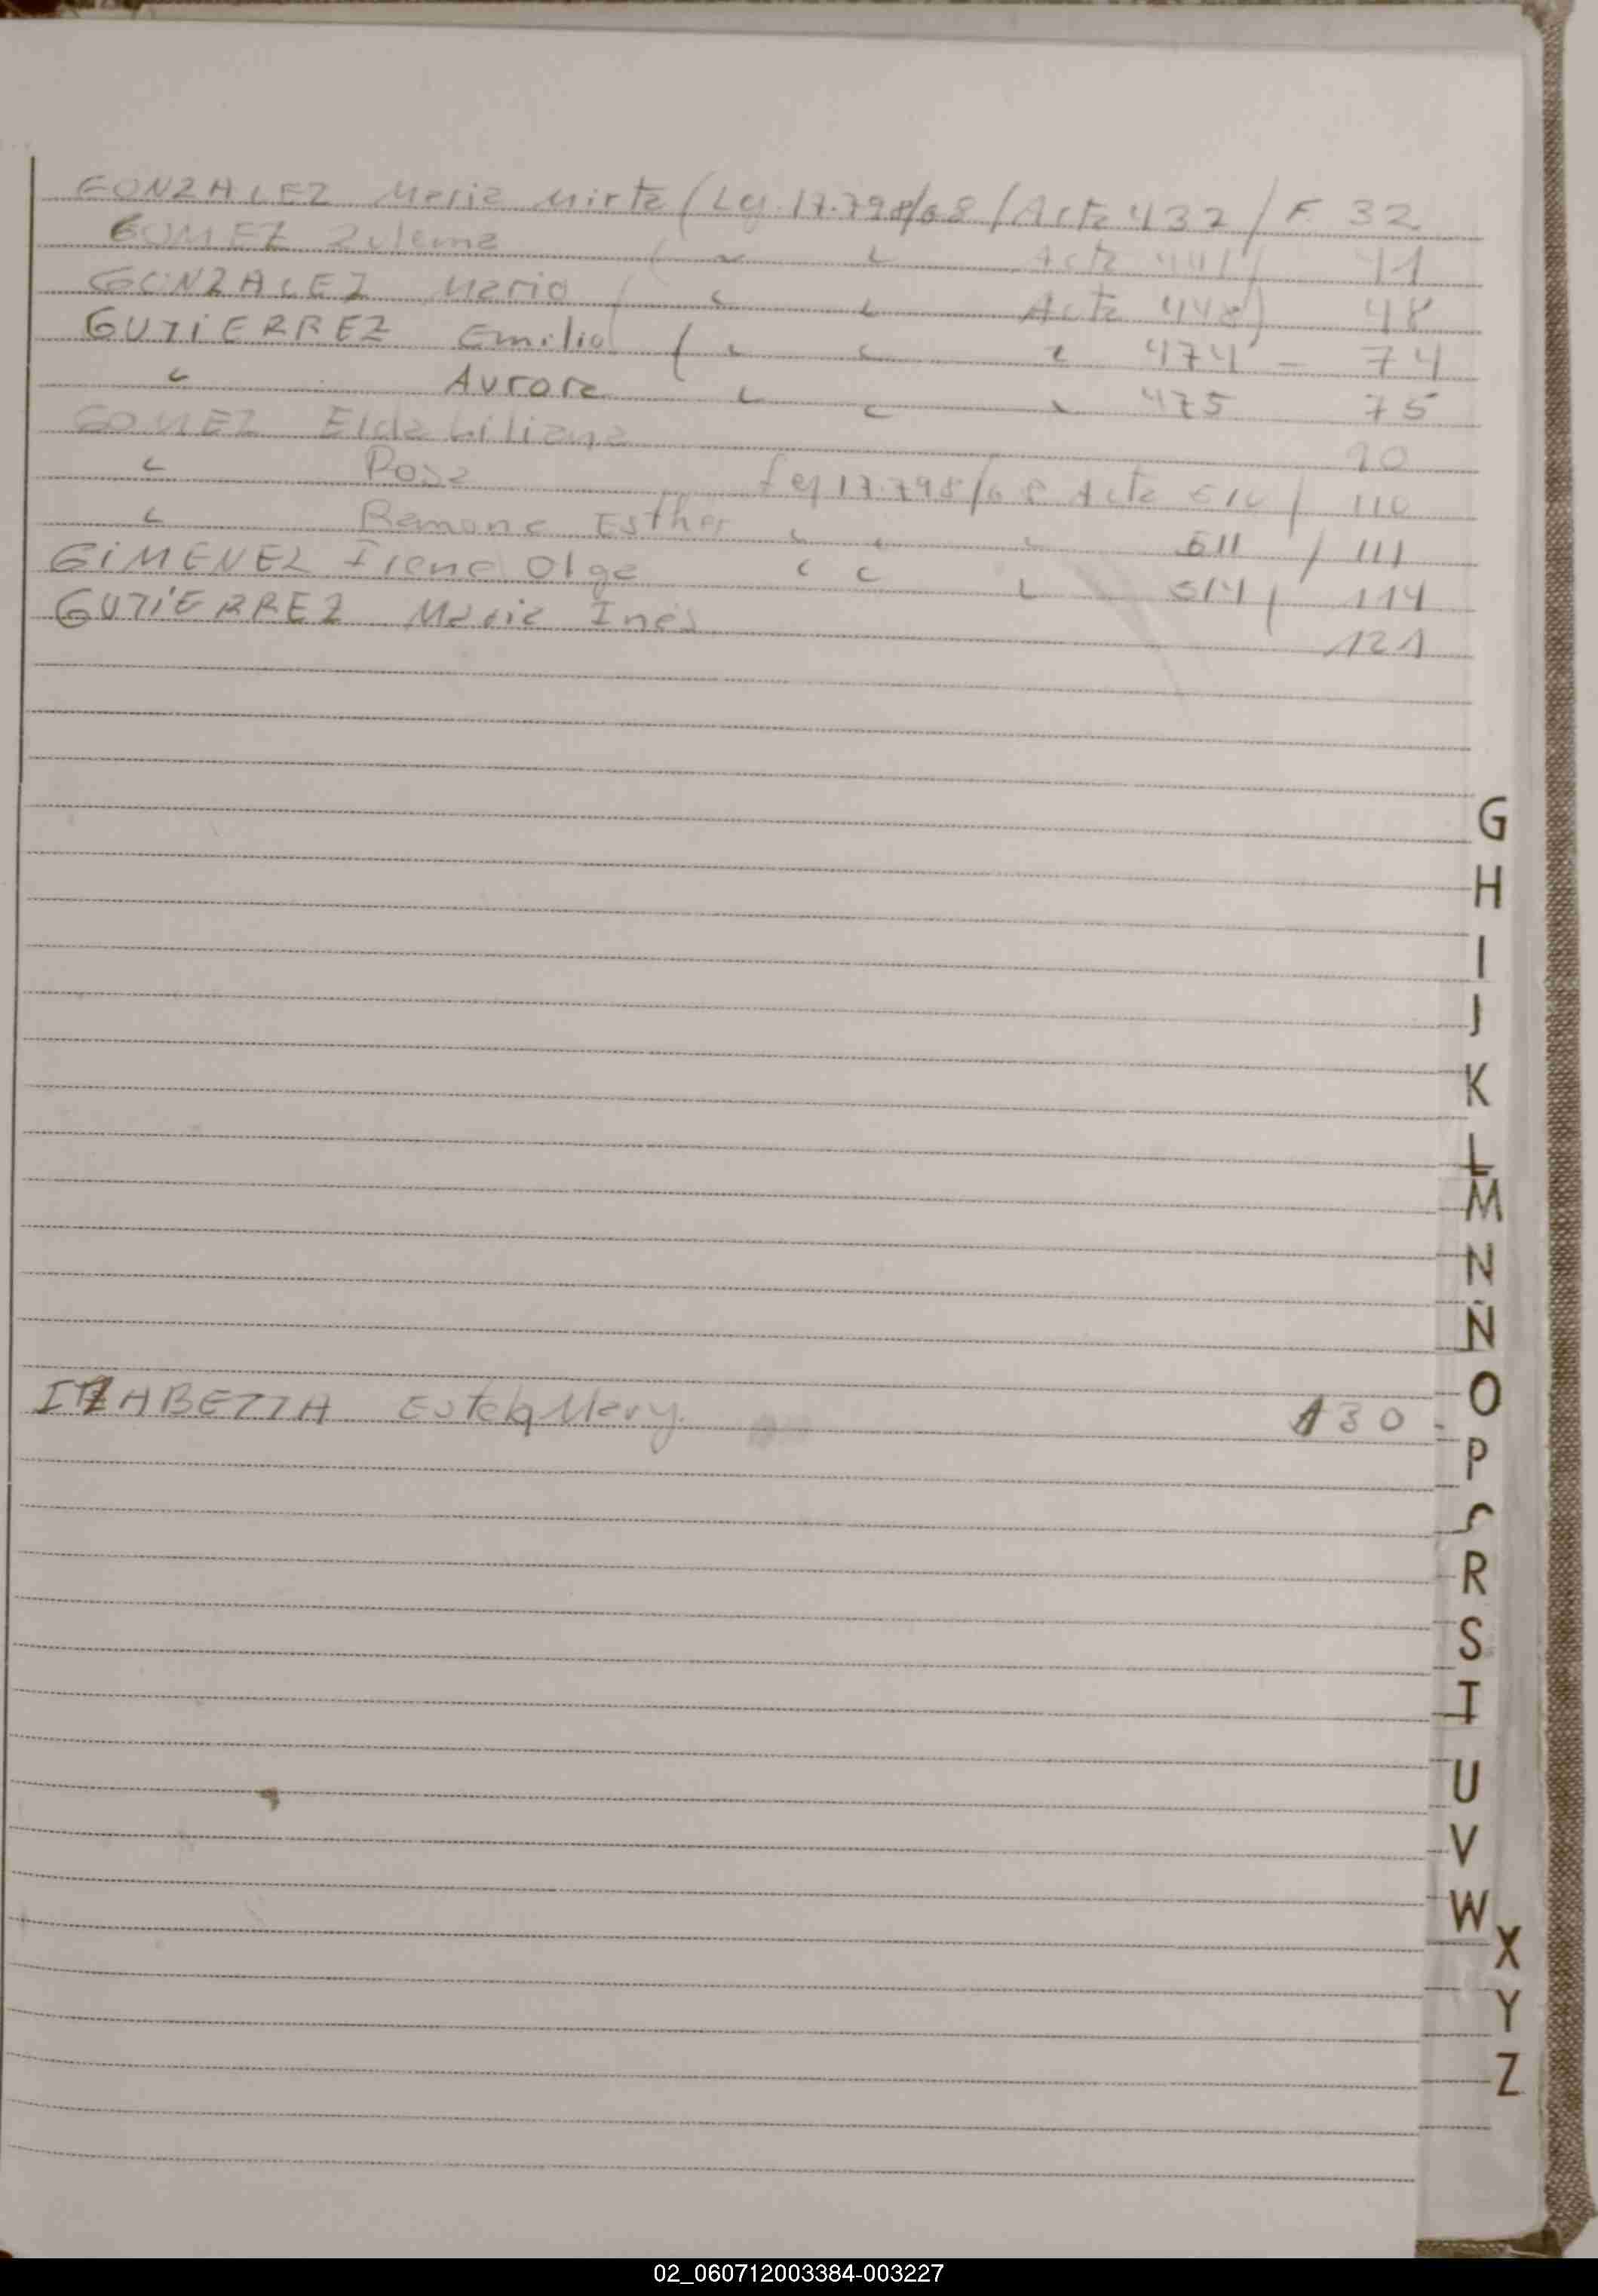 GONZALEZ Maria Mirta (Ley 17.798/68 / Acta 432 / F. 32
GOMEZ Zulema ( " " Acta 441) 41
GONZALEZ Mario ( " " Acta 448) 48
GUTiERREZ Emilio ( " " " 474 - 74
" Aurora " " " 475 75
GOMEZ Elda Liliana 90
" Rosa Ley 17.798/68 Acta 510 / 110
" Ramona Esther " " " 511 / 111
GiMENEZ Irene Olga " " " 514 / 114
GUTiERREZ Maria Inés 121
G
H
I
J
K
L
M
N
Ñ
O
IZABETTA Estela Mary. 130 -
P
R
S
T
U
V
W
X
Y
Z
02_060712003384-003227